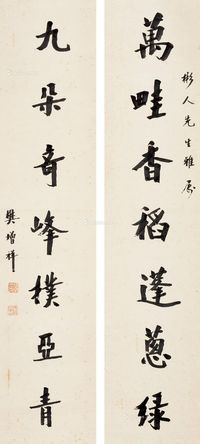 彬人先生雅属
萬畦香稻蓬蔥綠
九朵奇峰撲亞青
樊增祥